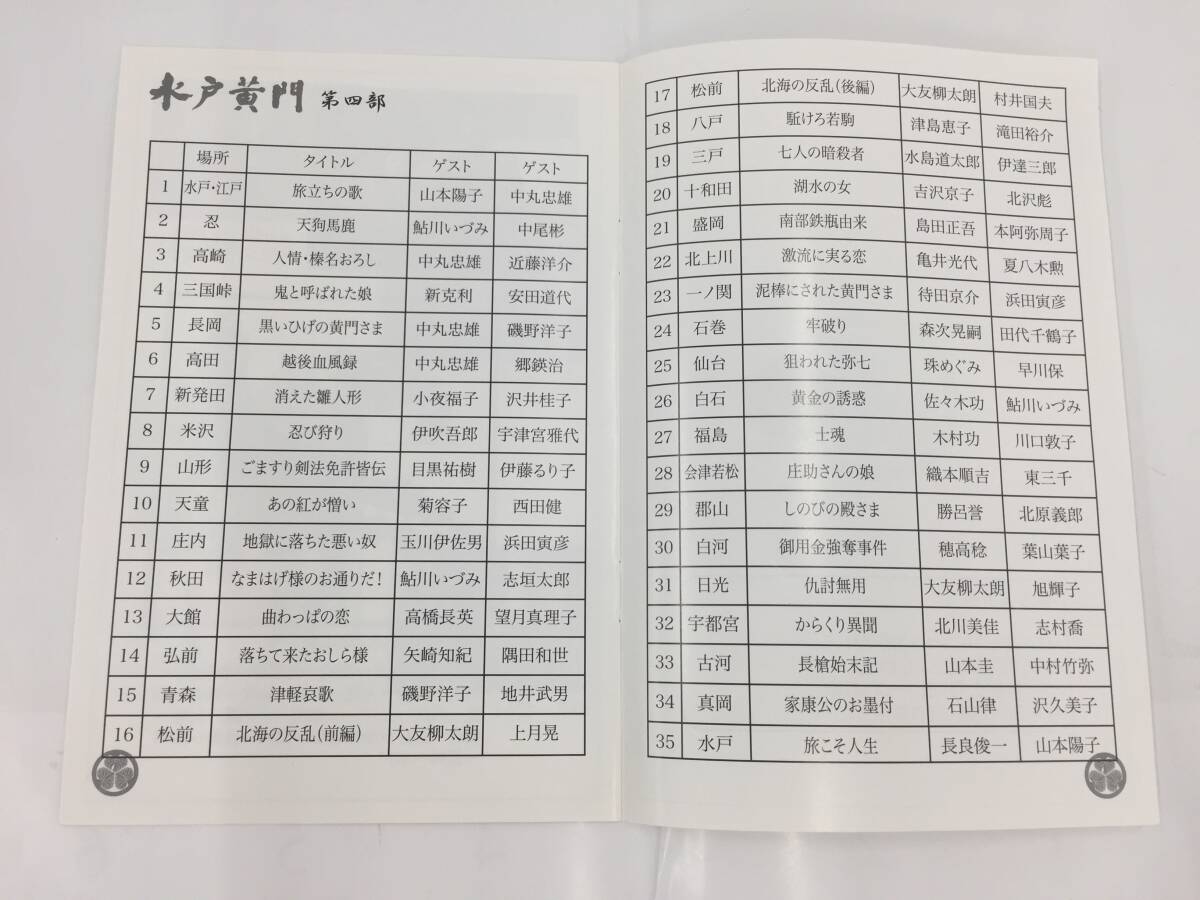 水戸黄門 第四部
場所 タイトル ゲスト ゲスト
1 水戸・江戸 旅立ちの歌 山本陽子 中丸忠雄
2 忍 天狗馬鹿 鮎川いづみ 中尾彬
3 高崎 人情・榛名おろし 中丸忠雄 近藤洋介
4 三国峠 鬼と呼ばれた娘 新克利 安田道代
5 長岡 黒いひげの黄門さま 中丸忠雄 磯野洋子
6 高田 越後血風録 中丸忠雄 郷鍈治
7 新発田 消えた雛人形 小夜福子 沢井桂子
8 米沢 忍び狩り 伊吹吾郎 宇津宮雅代
9 山形 ごますり剣法免許皆伝 目黒祐樹 伊藤るり子
10 天童 あの紅が憎い 菊容子 西田健
11 庄内 地獄に落ちた悪い奴 玉川伊佐男 浜田寅彦
12 秋田 なまはげ様のお通りだ! 鮎川いづみ 志垣太郎
13 大館 曲わっぱの恋 高橋長英 望月真理子
14 弘前 落ちて来たおしら様 矢崎知紀 隅田和世
15 青森 津軽哀歌 磯野洋子 地井武男
16 松前 北海の反乱(前編) 大友柳太朗 上月晃
17 松前 北海の反乱(後編) 大友柳太朗 村井国夫
18 八戸 駈けろ若駒 津島恵子 滝田裕介
19 三戸 七人の暗殺者 水島道太郎 伊達三郎
20 十和田 湖水の女 吉沢京子 北沢彪
21 盛岡 南部鉄瓶由来 島田正吾 本阿弥周子
22 北上川 激流に実る恋 亀井光代 夏八木勲
23 一ノ関 泥棒にされた黄門さま 待田京介 浜田寅彦
24 石巻 牢破り 森次晃嗣 田代千鶴子
25 仙台 狙われた弥七 珠めぐみ 早川保
26 白石 黄金の誘惑 佐々木功 鮎川いづみ
27 福島 士魂 木村功 川口敦子
28 会津若松 庄助さんの娘 織本順吉 東三千
29 郡山 しのびの殿さま 勝呂誉 北原義郎
30 白河 御用金強奪事件 穂高稔 葉山葉子
31 日光 仇討無用 大友柳太朗 旭輝子
32 宇都宮 からくり異聞 北川美佳 志村喬
33 古河 長槍始末記 山本圭 中村竹弥
34 真岡 家康公のお墨付 石山律 沢久美子
35 水戸 旅こそ人生 長良俊一 山本陽子